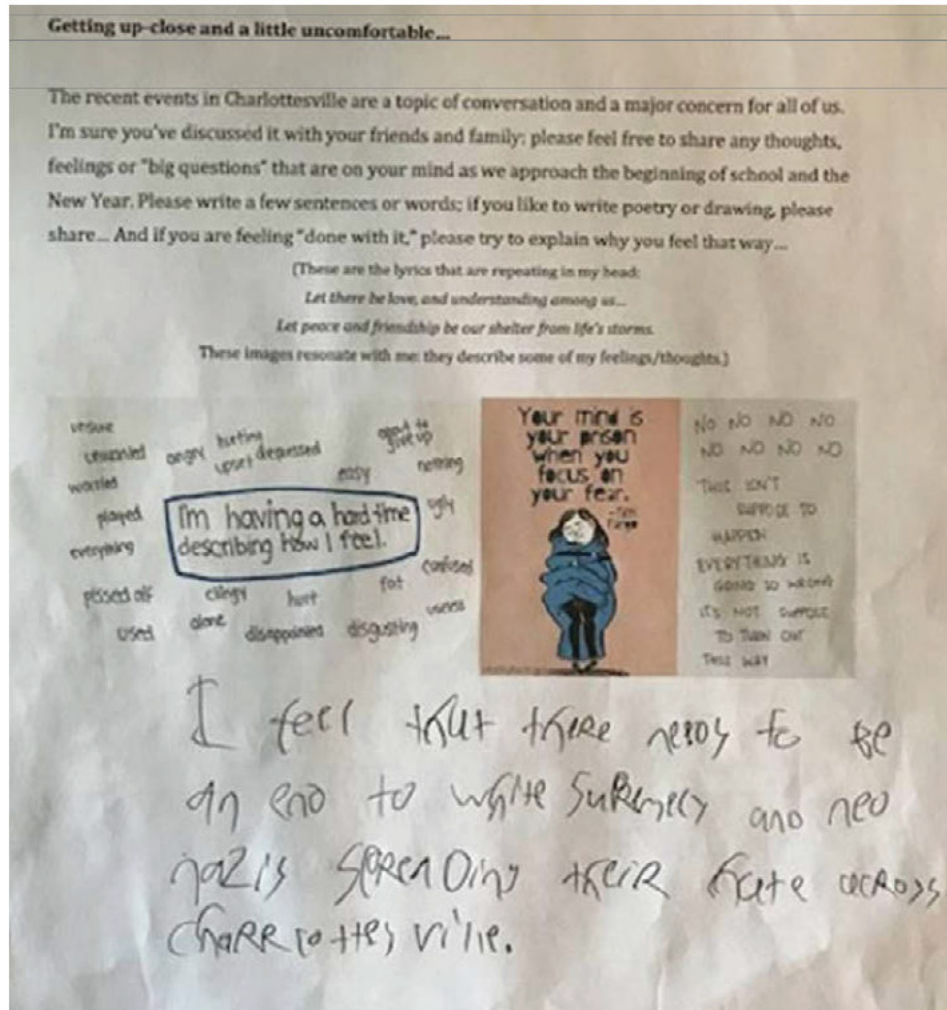 Getting up-close and a little uncomfortable...
The recent events in Charlottesville are a topic of conversation and a major concern for all of us.
I'm sure you've discussed it with your friends and family; please feel free to share any thoughts,
feelings or "big questions" that are on your mind as we approach the beginning of school and the
New Year. Please write a few sentences or words; if you like to write poetry or drawing, please
share... And if you are feeling "done with it," please try to explain why you feel that way...
(These are the lyrics that are repeating in my head:
Let there be love, and understanding among us...
Let peace and friendship be our shelter from life's storms.
These images resonate with me: they describe some of my feelings/thoughts.)
worried
angry
hurting
upset
depressed
good to
give up
easy
nothing
played
ugly
everything
I'm having a hard time
describing how I feel.
confused
pissed off
clingy
hurt
fat
used
alone
disappointed
disgusting
useless
Your mind is
your prison
when you
focus on
your fear.
NO NO NO NO
NO NO NO NO
THIS ISN'T
SUPPOSE TO
HAPPEN
EVERYTHING IS
GOING SO WRONG
IT'S NOT SUPPOSE
TO TURN OUT
THIS WAY
I feel that there needs to be
an end to white
and neo
nazis spreading their hate across